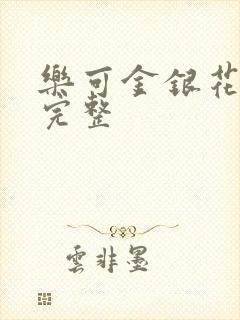 樂可金銀花
完整
雲非墨